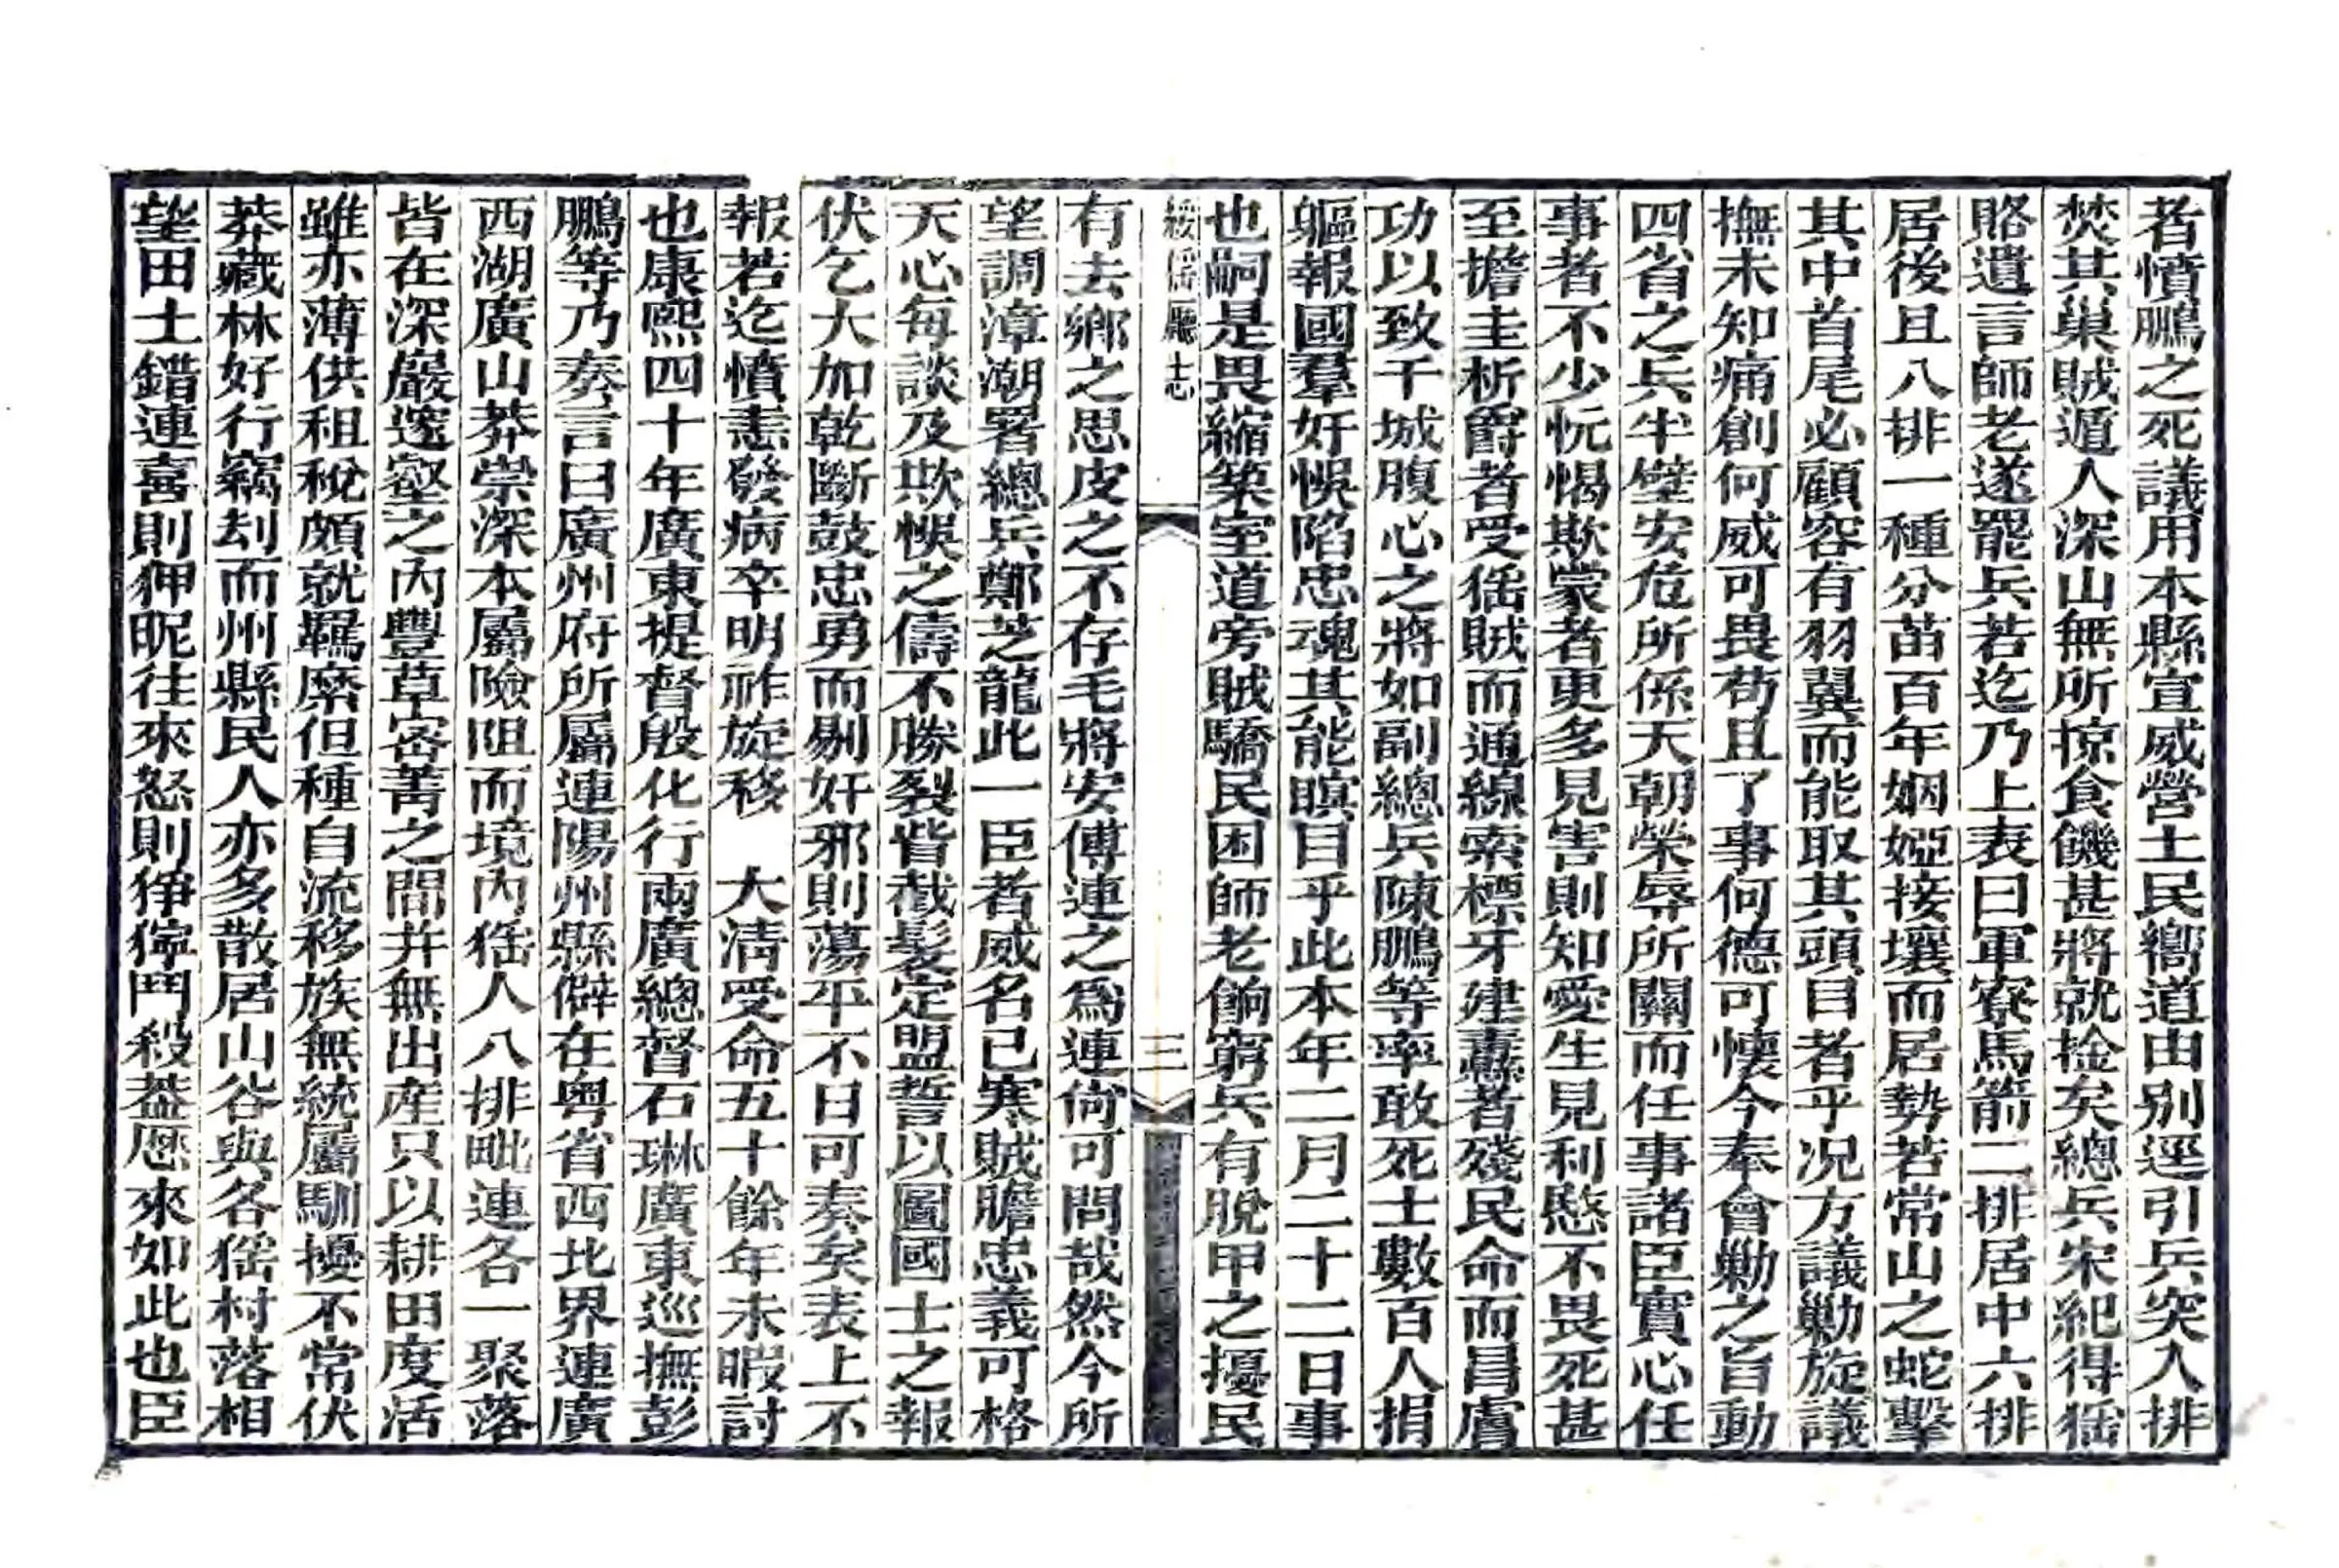 者憤鵬之死議用本縣宣威營土民嚮道由別逕引兵突入排
焚其巢賊遁入深山無所掠食饑甚將就撿矣總兵宋紀得猺
賂遺言師老遂罷兵若迄乃上表曰軍寮馬箭二排居中六排
居後且八排一種分苗百年姻婭接壤而居勢若常山之蛇擊
其中首尾必顧容有羽翼而能取其頭目者乎况方議勦旋議
撫未知痛創何威可畏苟且了事何德可懷今奉會勦之旨動
四省之兵半壁安危所係天朝榮辱所關而任事諸臣實心任
事者不少忨愒欺蒙者更多見害則知愛生見利愍不畏死甚
至擔圭析爵者受猺賊而通線索標牙建纛者殘民命而冒膚
功以致干城腹心之將如副總兵陳鵬等率敢死士數百人捐
軀報國羣奸悞陷忠魂其能瞑目乎此本年二月二十二日事
也嗣是畏縮築室道旁賊驕民困師老餉窮兵有脫甲之擾民
綏猺廳志
三
有去鄉之思皮之不存毛將安傅連之爲連尙可問哉然今所
望調漳潮署總兵鄭芝龍此一臣者威名已寒賊膽忠義可格
天心每談及欺悞之儔不勝裂眥截髮定盟誓以圖國士之報
伏乞大加乾斷鼓忠勇而剔奸邪則蕩平不日可奏矣表上不
報若迄憤恚發病卒明祚旋移　大淸受命五十餘年未暇討
也康熙四十年廣東提督殷化行兩廣總督石琳廣東巡撫彭
鵬等乃奏言曰廣州府所屬連陽州縣僻在粤省西北界連廣
西湖廣山莽崇深本屬險阻而境內猺人八排毗連各一聚落
皆在深巖邃壑之內豐草密菁之間幷無出産只以耕田度活
雖亦薄供租稅頗就羈縻但種自流移族無統屬馴擾不常伏
莽藏林好行竊刦而州縣民人亦多散居山谷與各猺村落相
望田土錯連喜則狎昵往來怒則猙獰鬥殺葢歷來如此也臣